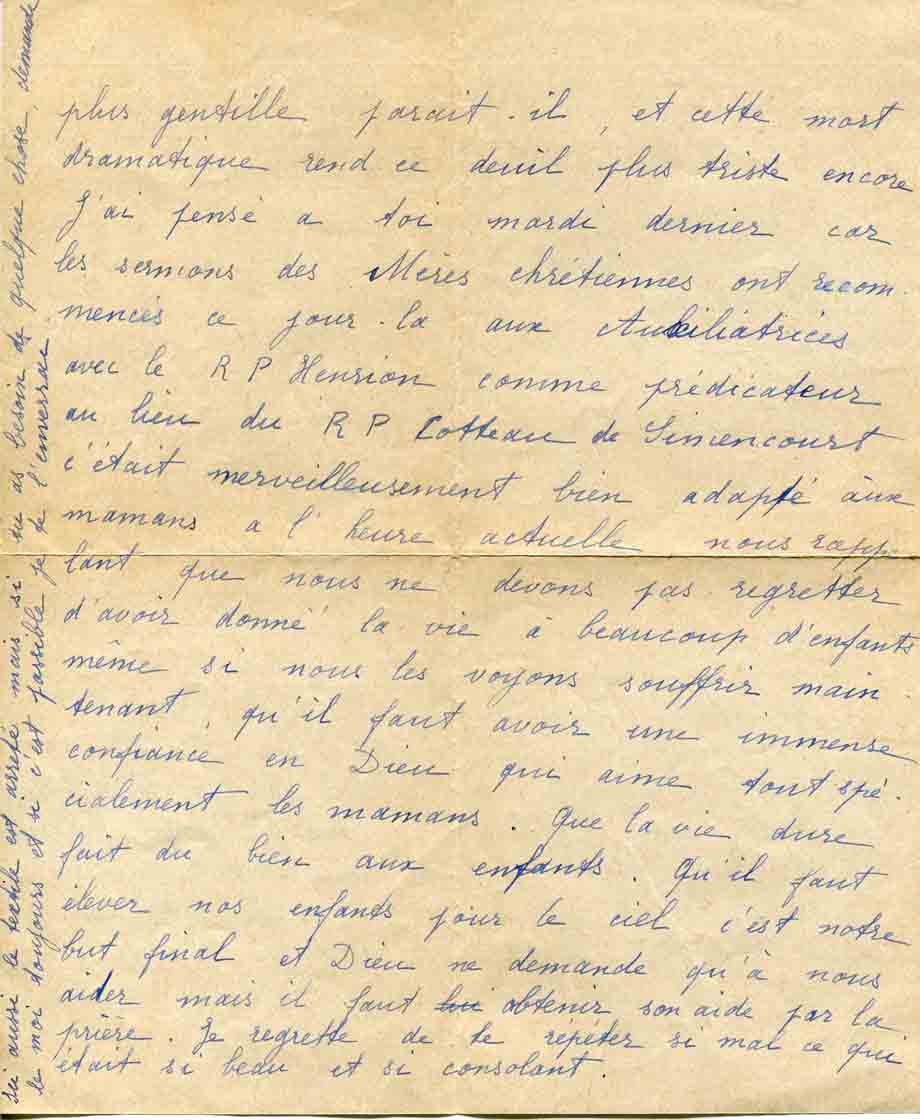 plus gentille parait-il, et cette mort
dramatique rend ce deuil plus triste encore
J'ai pensé a toi mardi dernier car
les sermons des Mères chrétiennes ont recom-
mencés ce jour-la aux Auxiliatrices
avec le R P Henrion comme prédicateur
au lieu du R P Cotteau de Simencourt
c'était merveilleusement bien adapté àux
mamans a l'heure actuelle nous rapp
lant que nous ne devons pas regretter
d'avoir donné la vie à beaucoup d'enfants
même si nous les voyons souffrir main-
tenant, qu'il faut avoir une immense
confiance en Dieu qui aime tout spé-
cialement les mamans. Que la vie dure
fait du bien aux enfants. Qu'il faut
élever nos enfants pour le ciel c'est notre
but final et Dieu ne demande qu'à nous
aider mais il faut lui obtenir son aide par la
prière. Je regrette de te répéter si mal ce qui
était si beau et si consolant.
Ici aussi le textile est arrêté mais si tu as besoin de quelque chose, demande
le moi toujours et si c'est possible je te l'enverrai